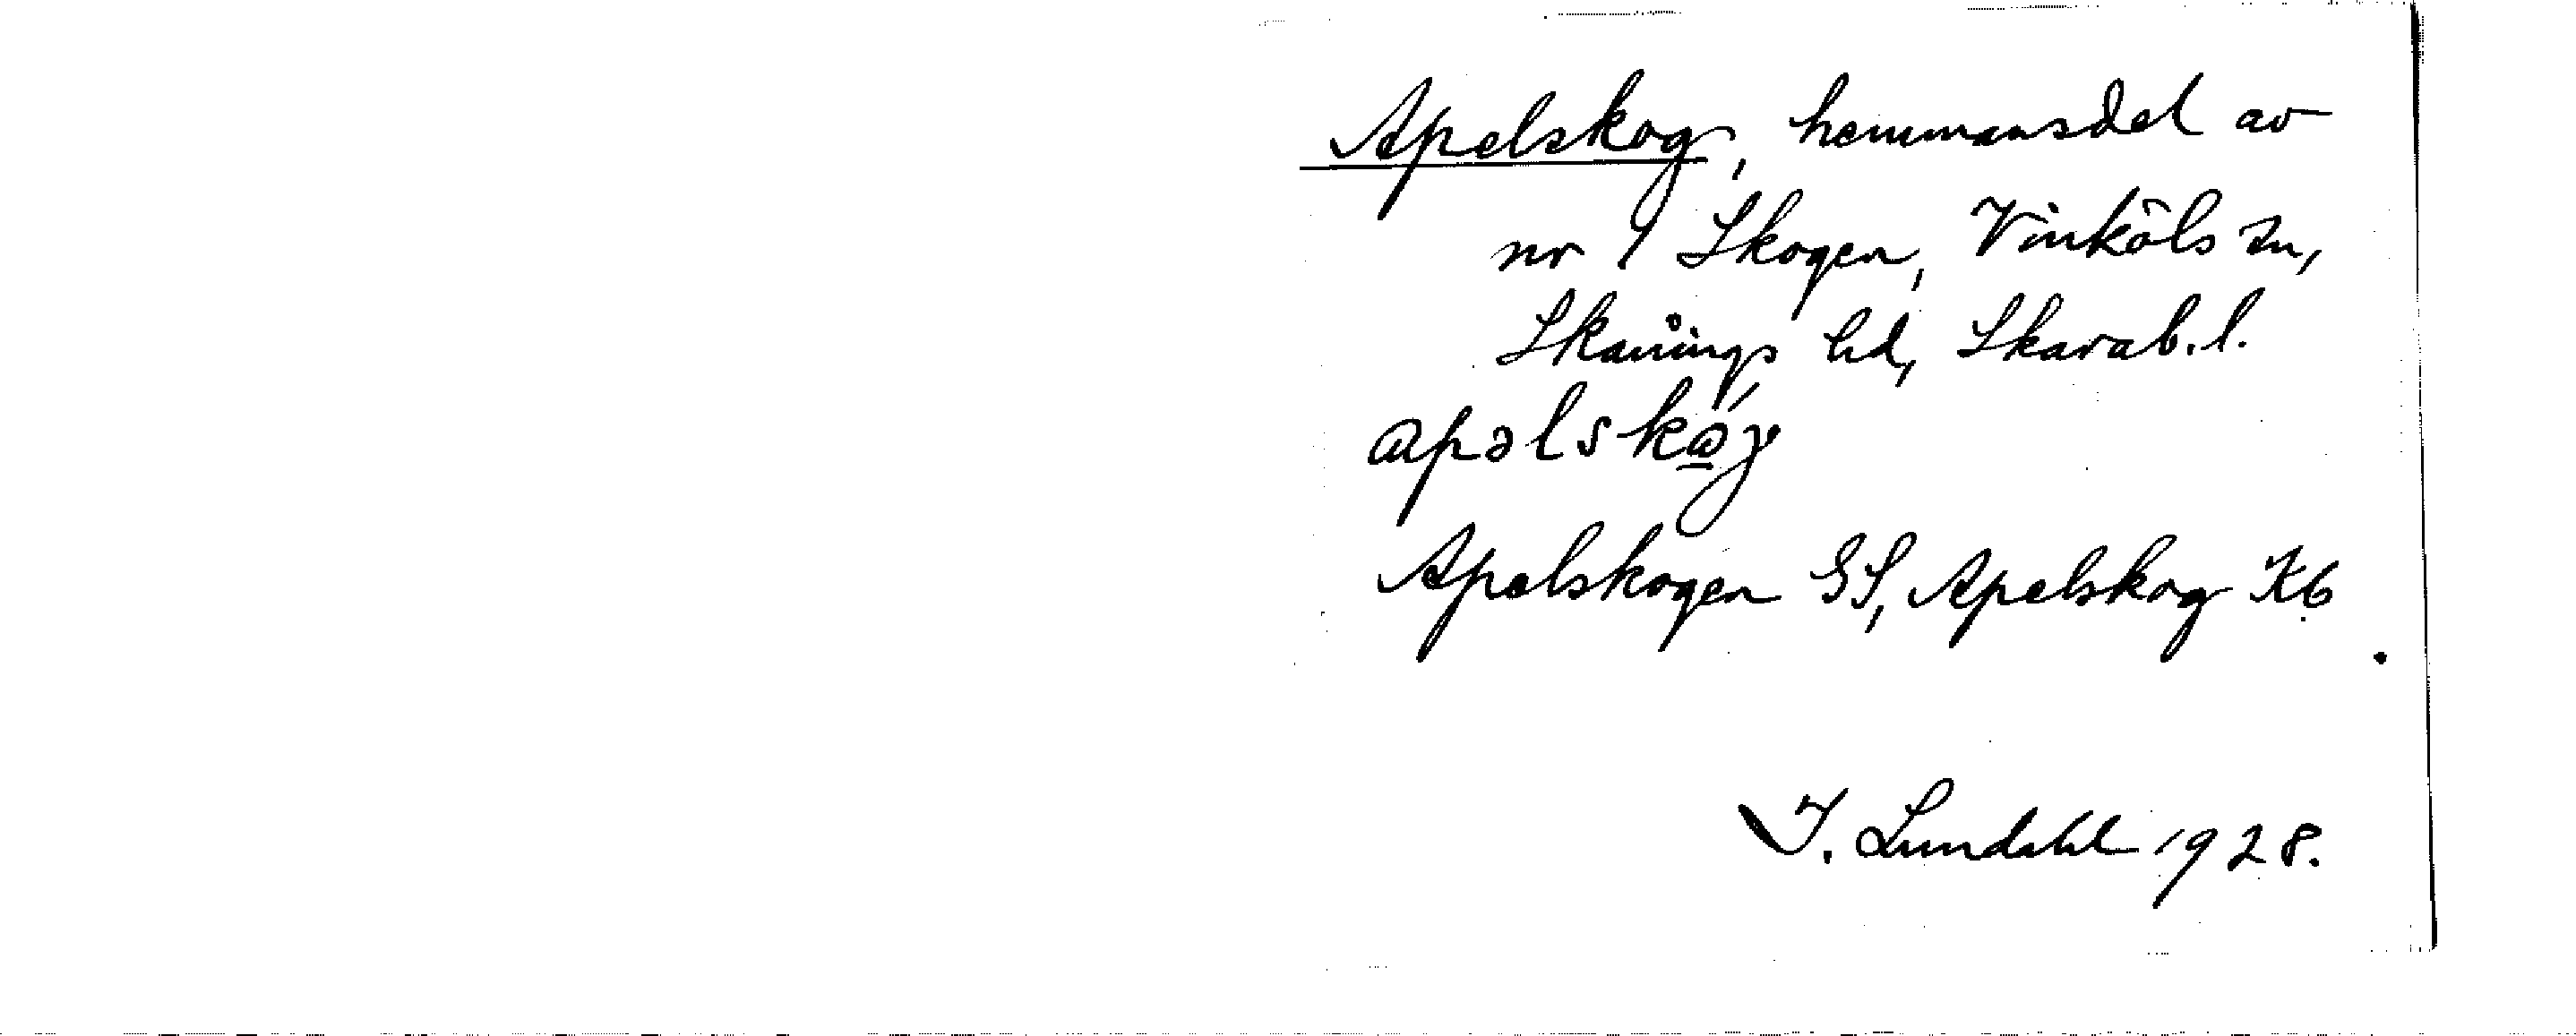 Apelskog, hemmansdel av
nr 1 Skogen, Vinköls sn,
Skånings hd, Skarab. l.
apəlskǫ́γ
Apelskogen GS, Apelskog Kb
I. Lundahl 1928.